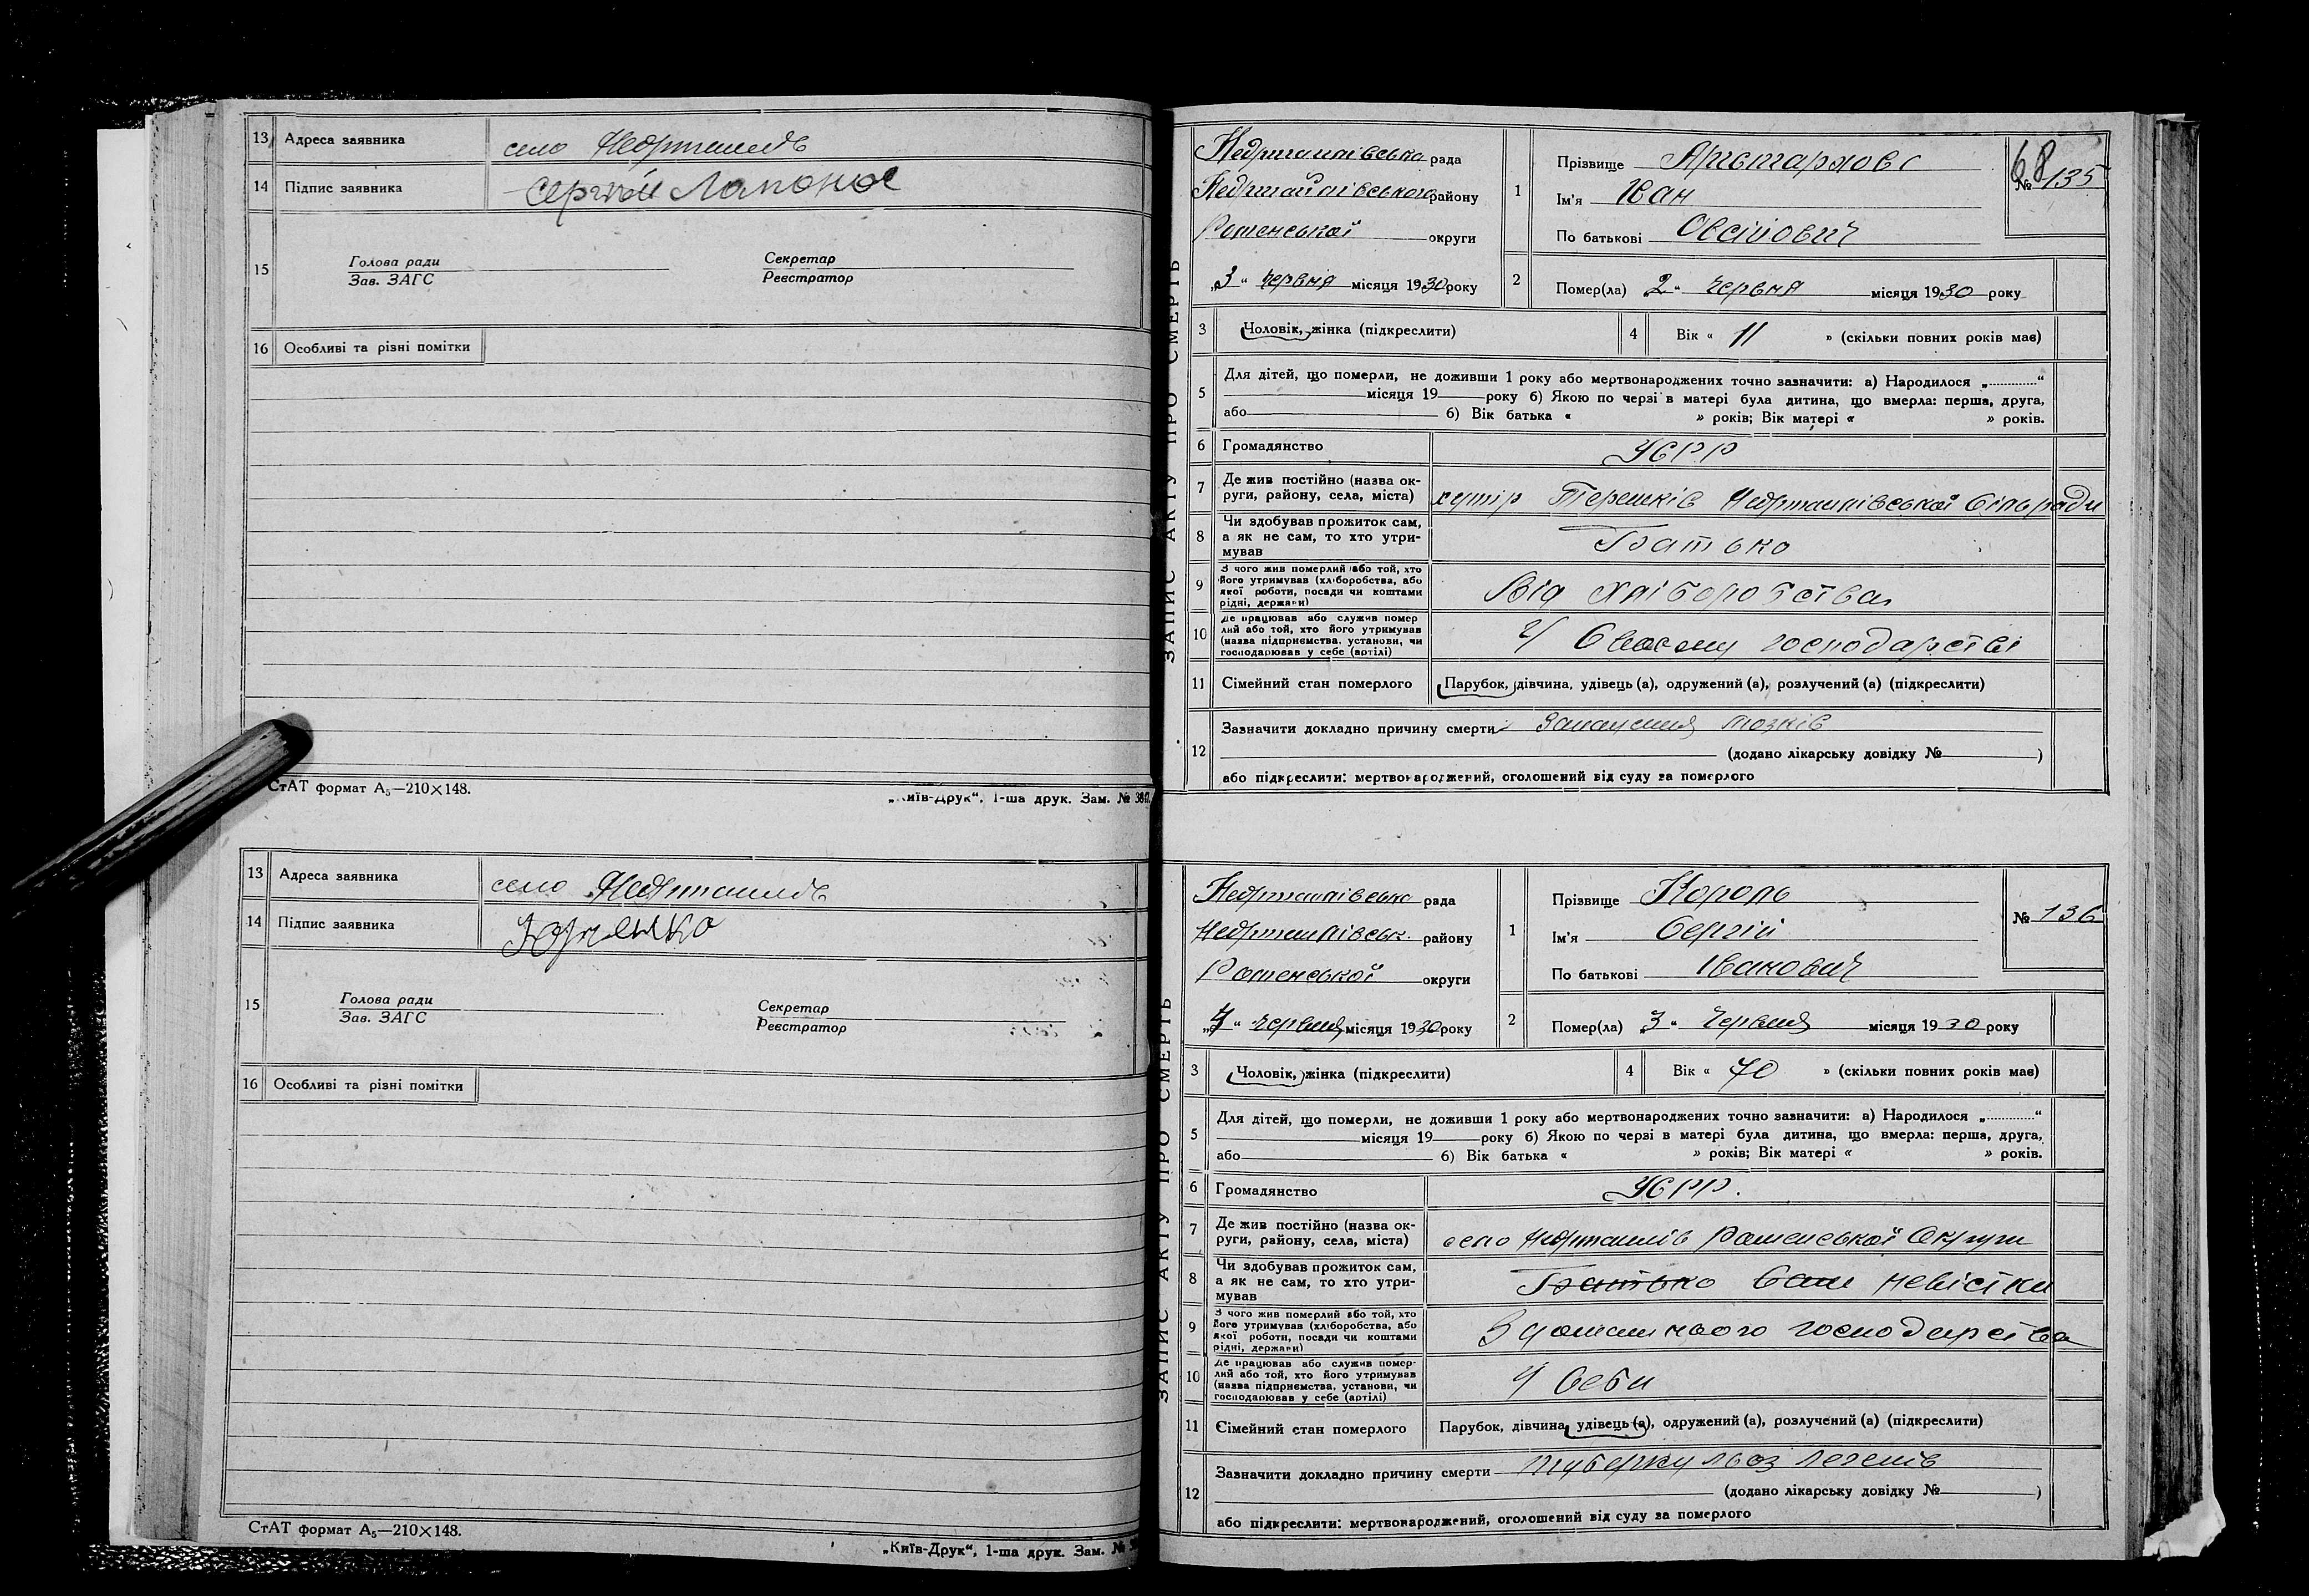 13 Адреса заявника село Недригайлів
14 Підпис заявника Сергій Лапонос
15 Голова ради Секретар
Зав. ЗАГС Реєстратор
16 Особливі та різні помітки
СтАТ формат А₅—210×148.
„Київ-Друк“, 1-ша друк. Зам. №
13 Адреса заявника село Недригайлів
14 Підпис заявника
15 Голова ради Секретар
Зав. ЗАГС Реєстратор
16 Особливі та різні помітки
СтАТ формат А₅—210×148.
„Київ-Друк“, 1-ша друк. Зам. №
ЗАПИС АКТУ ПРО СМЕРТЬ
68
№ 135
Недригайлівська рада
Недригайлівського району
Роменської округи
„3“ червня місяця 1930 року
1 Прізвище
Ім'я Іван
По батькові Овсійович
2 Помер(ла) „2“ червня місяця 1930 року
3 Чоловік, жінка (підкреслити)
4 Вік « 11 » (скільки повних років має)
5 Для дітей, що померли, не доживши 1 року або мертвонароджених точно зазначити: а) Народилося „ “
місяця 19 року б) Якою по черзі в матері була дитина, що вмерла: перша, друга,
або б) Вік батька « » років; Вік матері « » років.
6 Громадянство УСРР
7 Де жив постійно (назва ок-
руги, району, села, міста) хутір Терешків Недригайлівської сільради
8 Чи здобував прожиток сам,
а як не сам, то хто утри-
мував Батько
9 З чого жив померлий або той, хто
його утримував (хліборобства, або
якої роботи, посади чи коштами
рідні, держави) Від хліборобства
10 Де працював або служив помер
лий або той, хто його утримував
(назва підприємства, установи, чи
господарював у себе (артілі) У власному господарстві
11 Сімейний стан померлого Парубок, дівчина, удівець (а), одружений (а), розлучений (а) (підкреслити)
12 Зазначити докладно причину смерти Запалення мозків
(додано лікарську довідку № )
або підкреслити: мертвонароджений, оголошений від суду за померлого
ЗАПИС АКТУ ПРО СМЕРТЬ
№ 136
Недригайлівська рада
Недригайлівськ. району
Роменської округи
„4“ червня місяця 1930 року
1 Прізвище Король
Ім'я Сергій
По батькові Іванович
2 Помер(ла) „3“ червня місяця 1930 року
3 Чоловік, жінка (підкреслити)
4 Вік « 70 » (скільки повних років має)
5 Для дітей, що померли, не доживши 1 року або мертвонароджених точно зазначити: а) Народилося „ “
місяця 19 року б) Якою по черзі в матері була дитина, що вмерла: перша, друга,
або б) Вік батька « » років; Вік матері « » років.
6 Громадянство УСРР.
7 Де жив постійно (назва ок-
руги, району, села, міста) село Недригайлів Роменської Округи
8 Чи здобував прожиток сам,
а як не сам, то хто утри-
мував Батько невістки
9 З чого жив померлий або той, хто
його утримував (хліборобства, або
якої роботи, посади чи коштами
рідні, держави) З домашнього господарства
10 Де працював або служив помер-
лий або той, хто його утримував
(назва підприємства, установи, чи
господарював у себе (артілі) У себи
11 Сімейний стан померлого Парубок, дівчина, удівець (а), одружений (а), розлучений (а) (підкреслити)
12 Зазначити докладно причину смерти туберкульоз легенів
(додано лікарську довідку № )
або підкреслити: мертвонароджений, оголошений від суду за померлого